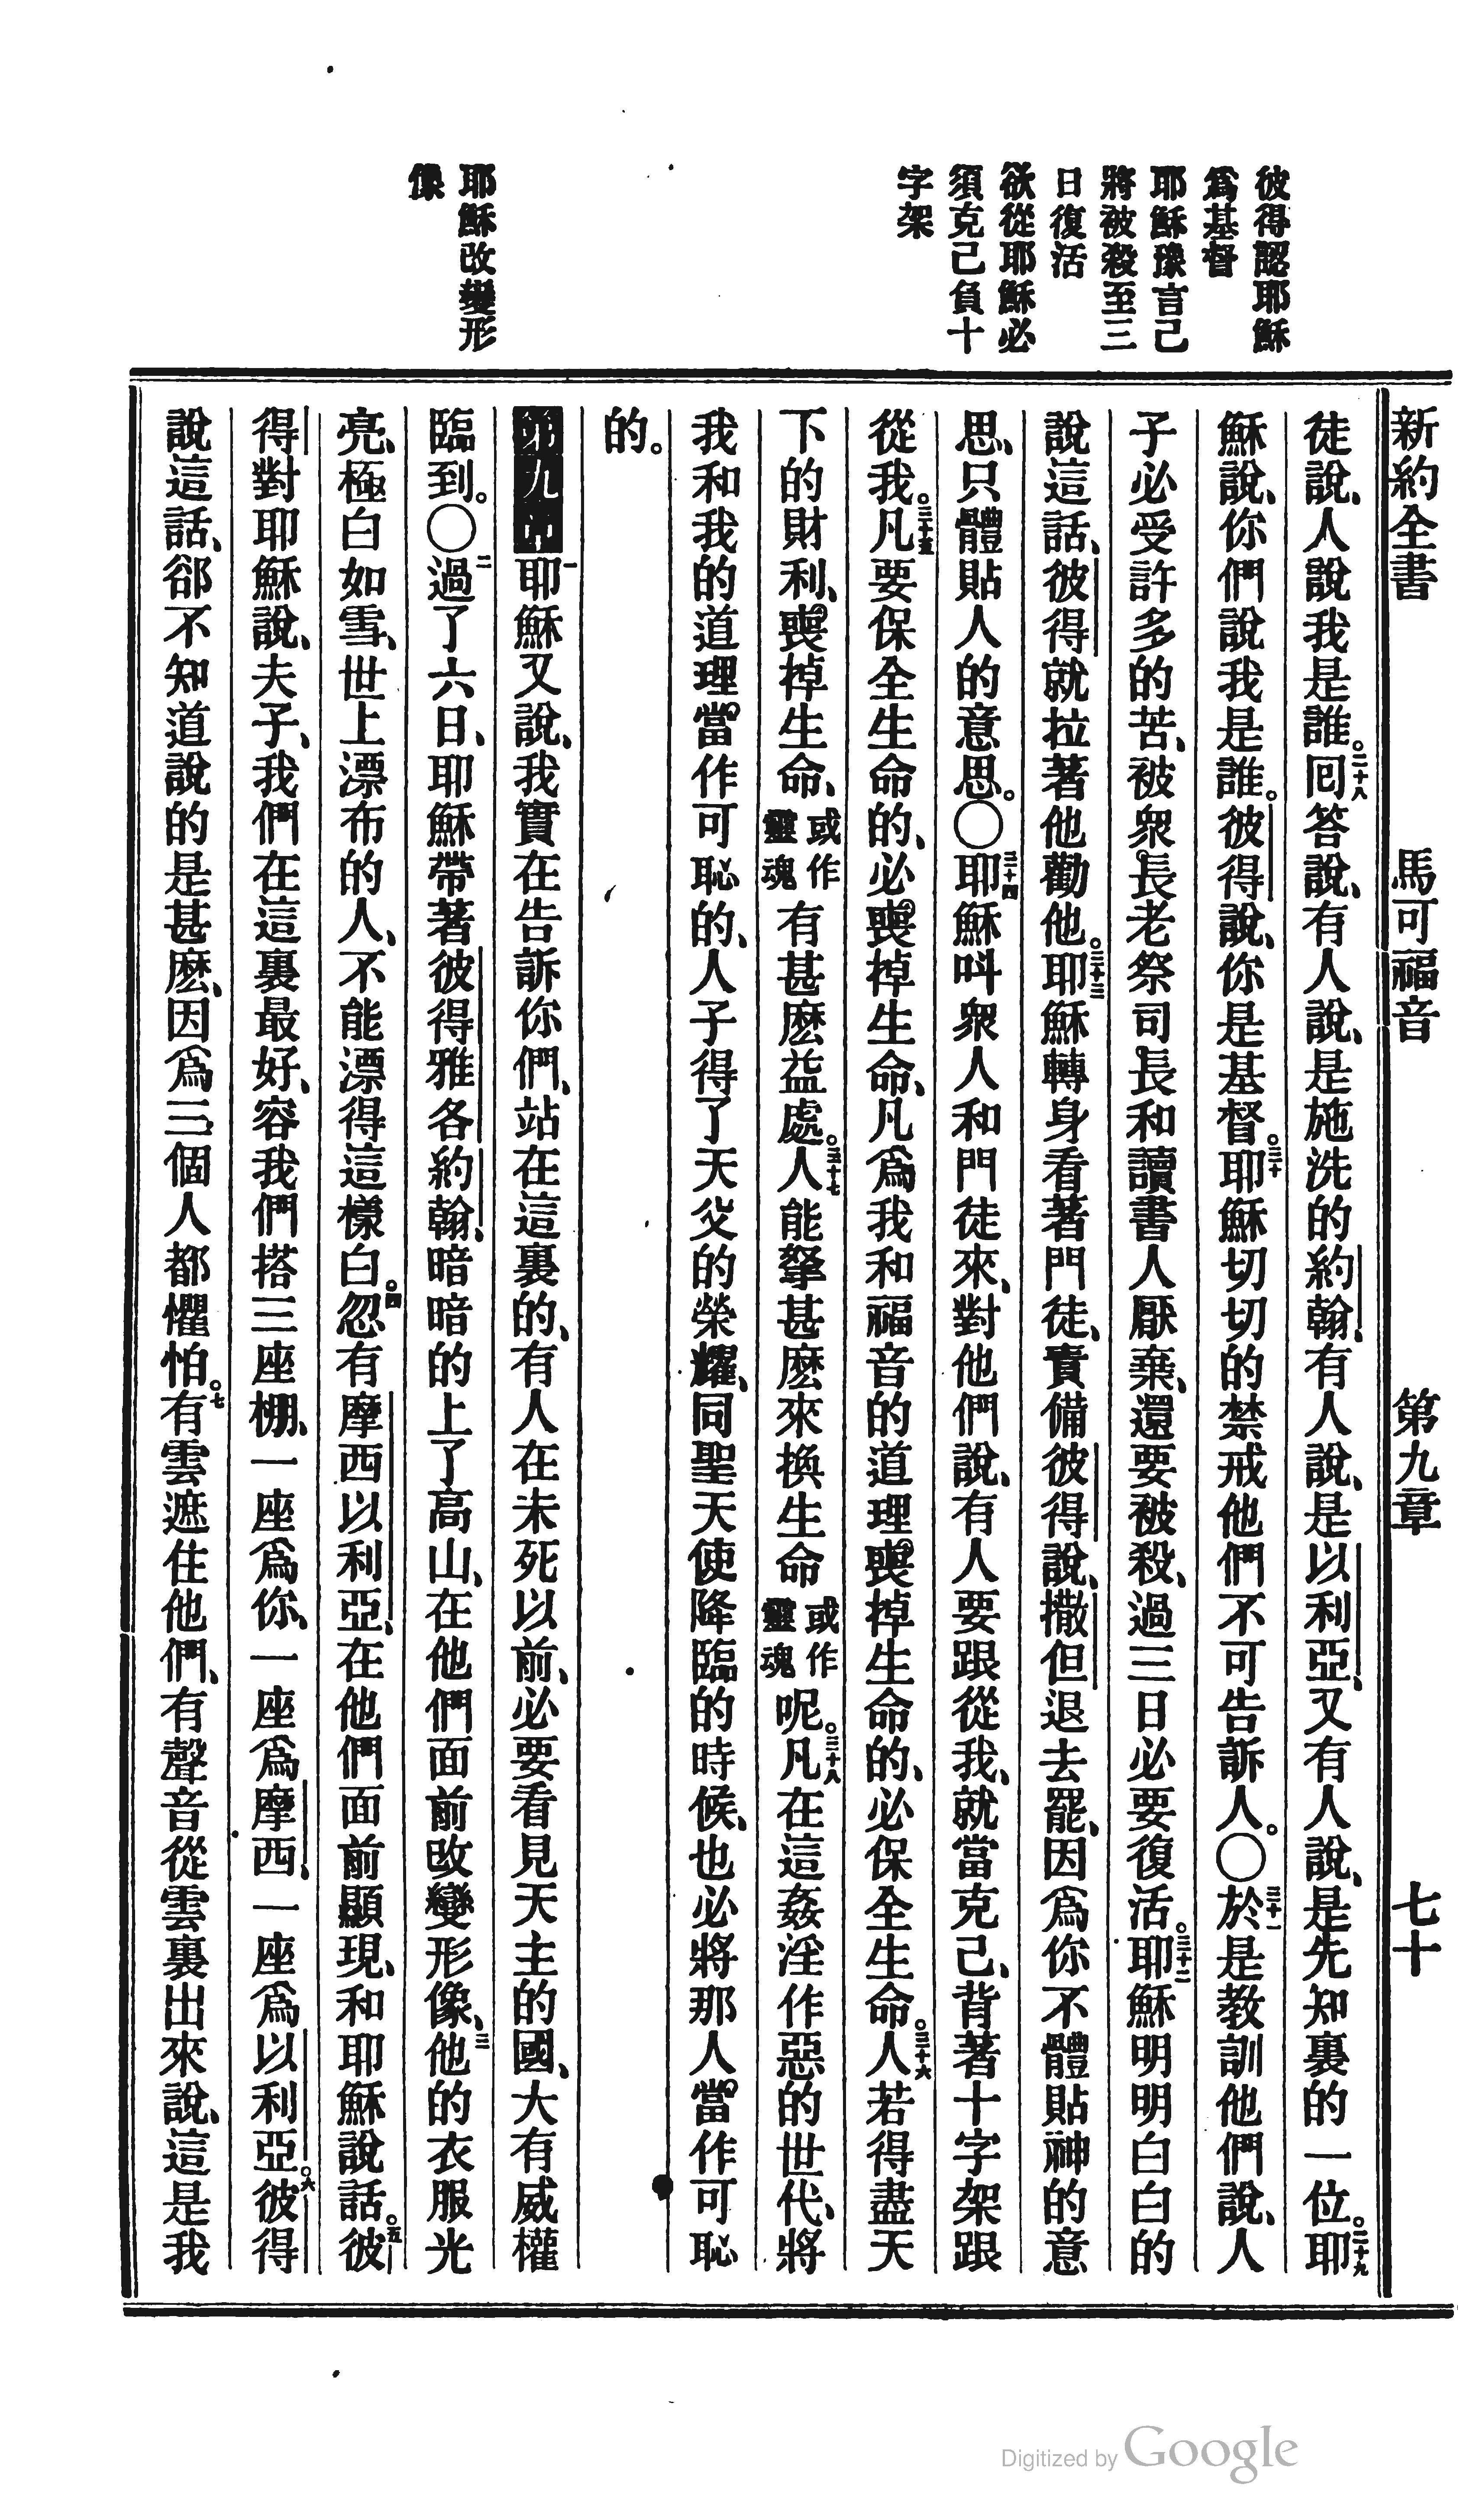 新約全書 馬可福音 第九章 七十
彼得認耶穌
爲基督
耶穌豫言己
將被殺至三
日復活
欲從耶穌必
須克己負十
字架
耶穌改變形
像
徒說、人說我是誰。二十八回答說、有人說、是施洗的約翰、有人說、是以利亞、又有人說、是先知裏的一位。二十九耶
穌說、你們說我是誰。彼得說、你是基督。三十耶穌切切的禁戒他們不可告訴人。〇三十一於是教訓他們說、人
子必受許多的苦、被衆長老祭司長和讀書人厭棄、還要被殺、過三日必要復活。三十二耶穌明明白白的
說這話、彼得就拉著他勸他。三十三耶穌轉身看著門徒、責備彼得說、撒但退去罷、因爲你不體貼神的意
思、只體貼人的意思。〇三十四耶穌叫衆人和門徒來、對他們說、有人要跟從我、就當克己、背著十字架跟
從我。三十五凡要保全生命的、必喪掉生命、凡爲我和福音的道理喪掉生命的、必保全生命。三十六人若得盡天
下的財利、喪掉生命、或作靈魂有甚麽益處。三十七人能拏甚麽來換生命或作靈魂呢。三十八凡在這姦淫作惡的世代、將
我和我的道理當作可恥的、人子得了天父的榮耀、同聖天使降臨的時候、也必將那人當作可恥
的。
第九章一耶穌又說、我實在告訴你們、站在這裏的、有人在未死以前、必要看見天主的國、大有威權
臨到。〇二過了六日、耶穌帶著彼得雅各約翰、暗暗的上了高山、在他們面前改變形像、三他的衣服光
亮、極白如雪、世上漂布的人、不能漂得這樣白。四忽有摩西以利亞、在他們面前顯現、和耶穌說話。五彼
得對耶穌說、夫子、我們在這裏最好、容我們搭三座棚、一座爲你、一座爲摩西、一座爲以利亞。六彼得
說這話、郤不知道說的是甚麽、因爲三個人都懼怕。七有雲遮住他們、有聲音從雲裏出來說、這是我
Digitized by Google